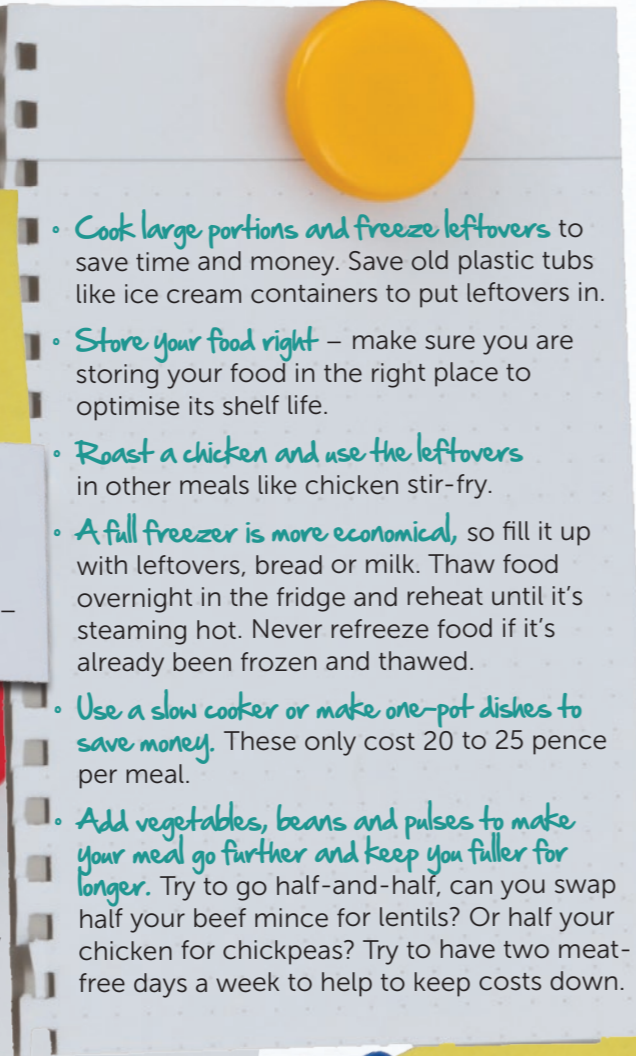 • Cook large portions and freeze leftovers to
save time and money. Save old plastic tubs
like ice cream containers to put leftovers in.
• Store your food right – make sure you are
storing your food in the right place to
optimise its shelf life.
• Roast a chicken and use the leftovers
in other meals like chicken stir-fry.
• A full freezer is more economical, so fill it up
with leftovers, bread or milk. Thaw food
overnight in the fridge and reheat until it's
steaming hot. Never refreeze food if it's
already been frozen and thawed.
• Use a slow cooker or make one-pot dishes to
save money. These only cost 20 to 25 pence
per meal.
• Add vegetables, beans and pulses to make
your meal go further and keep you fuller for
longer. Try to go half-and-half, can you swap
half your beef mince for lentils? Or half your
chicken for chickpeas? Try to have two meat-
free days a week to help to keep costs down.